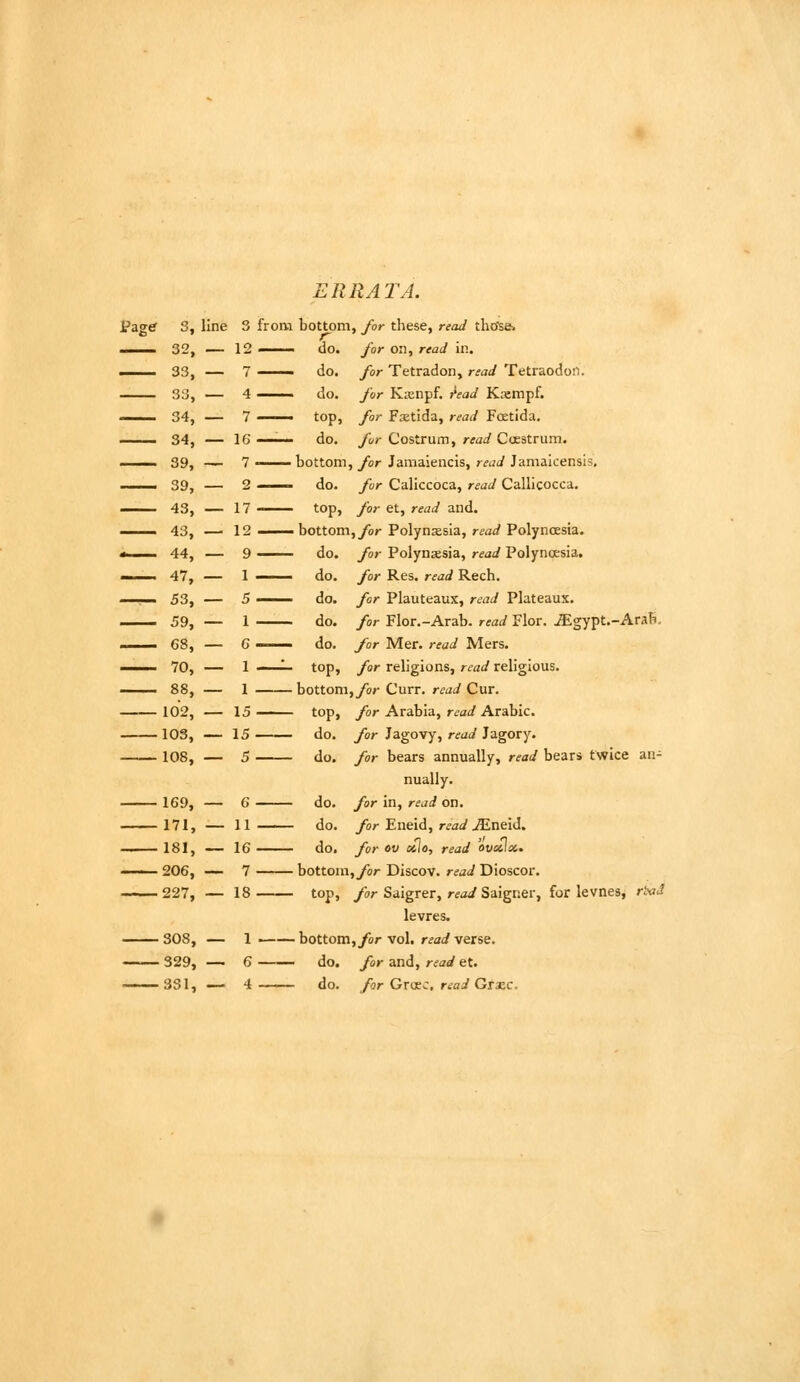 ERRATA.
Page 3, line 3 from bottom, for these, read those.
—— 32, — 12 —— do. for on, read in.
—— 33, — 7 —— do. for Tetradon, read Tetraodon.
—— 33, — 4 —— do. for Kænpf. read Kæmpf.
—— 34, — 7 —— top, for Fætida, read Fœtida.
—— 34, — 16 —— do. for Costrum, read Cœstrum.
—— 39, — 7 —— bottom, for Jamaiencis, read Jamaicensis,
—— 39, — 2 —— do. for Caliccoca, read Callicocca.
—— 43, — 17 —— top, for et, read and.
—— 43, — 12 —— bottom, for Polynæsia, read Polynœsia.
—— 44, — 9 —— do. for Polynæsia, read Polynœsia.
—— 47, — 1 —— do. for Res. read Rech.
—— 53, — 5 —— do. for Plauteaux, read Plateaux.
—— 59, — 1 —— do. for Flor.-Arab. read Flor. Ægypt.-Arab.
—— 68, — 6 —— do. for Mer. read Mers.
—— 70, — 1 —— top, for religions, read religious.
—— 88, — 1 —— bottom, for Curr. read Cur.
—— 102, — 15 —— top, for Arabia, read Arabic.
—— 103, — 15 —— do. for Jagovy, read Jagory.
—— 108, — 5 —— do. for bears annually, read bears twice an-
nually.
—— 169, — 6 —— do. for in, read on.
—— 171, — 11 —— do. for Eneid, read Æneid.
—— 181, — 16 —— do. for read
—— 206, — 7 —— bottom, for Discov. read Dioscor.
—— 227, — 18 —— top, for Saigrer, read Saigner, for levnes, read
levres.
—— 308, — 1 —— bottom, for vol. read verse.
—— 329, — 6 —— do. for and, read et.
—— 331, — 4 —— do. for Grœc, read Græc.